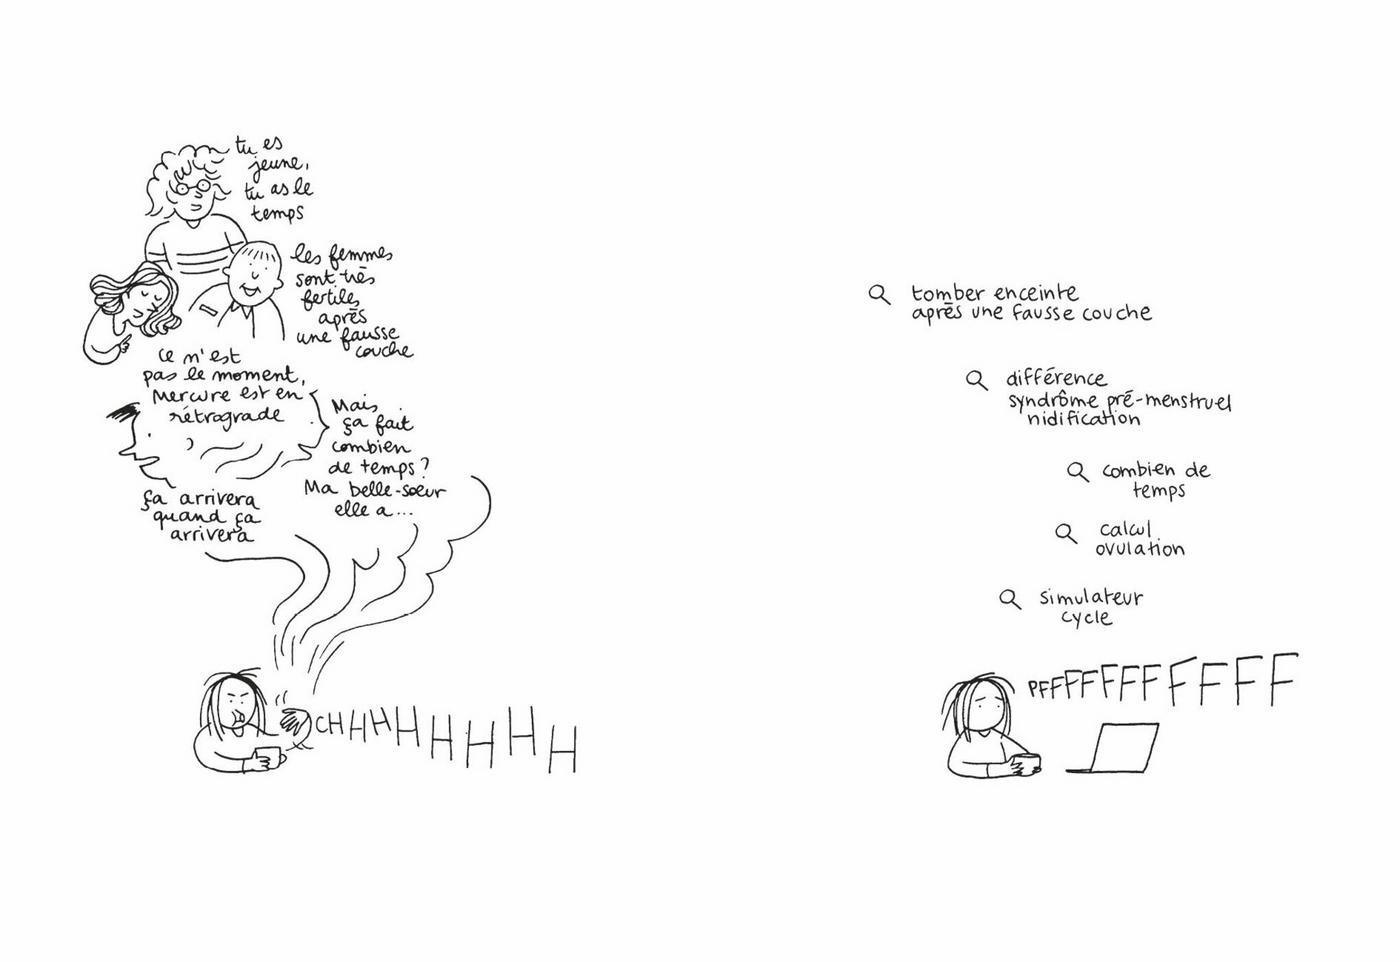 tu es
jeune,
tu as le
temps
les femmes
sont très
fertiles
après
une fausse
couche
ce n'est
pas le moment,
Mercure est en
rétrograde
Mais
ça fait
combien
de temps ?
Ma belle-sœur
elle a...
ça arrivera
quand ça
arrivera
CHHHHHHHH
tomber enceinte
après une fausse couche
différence
syndrôme pré-menstruel
nidification
combien de
temps
calcul
ovulation
simulateur
cycle
PFFFFFFFFFF